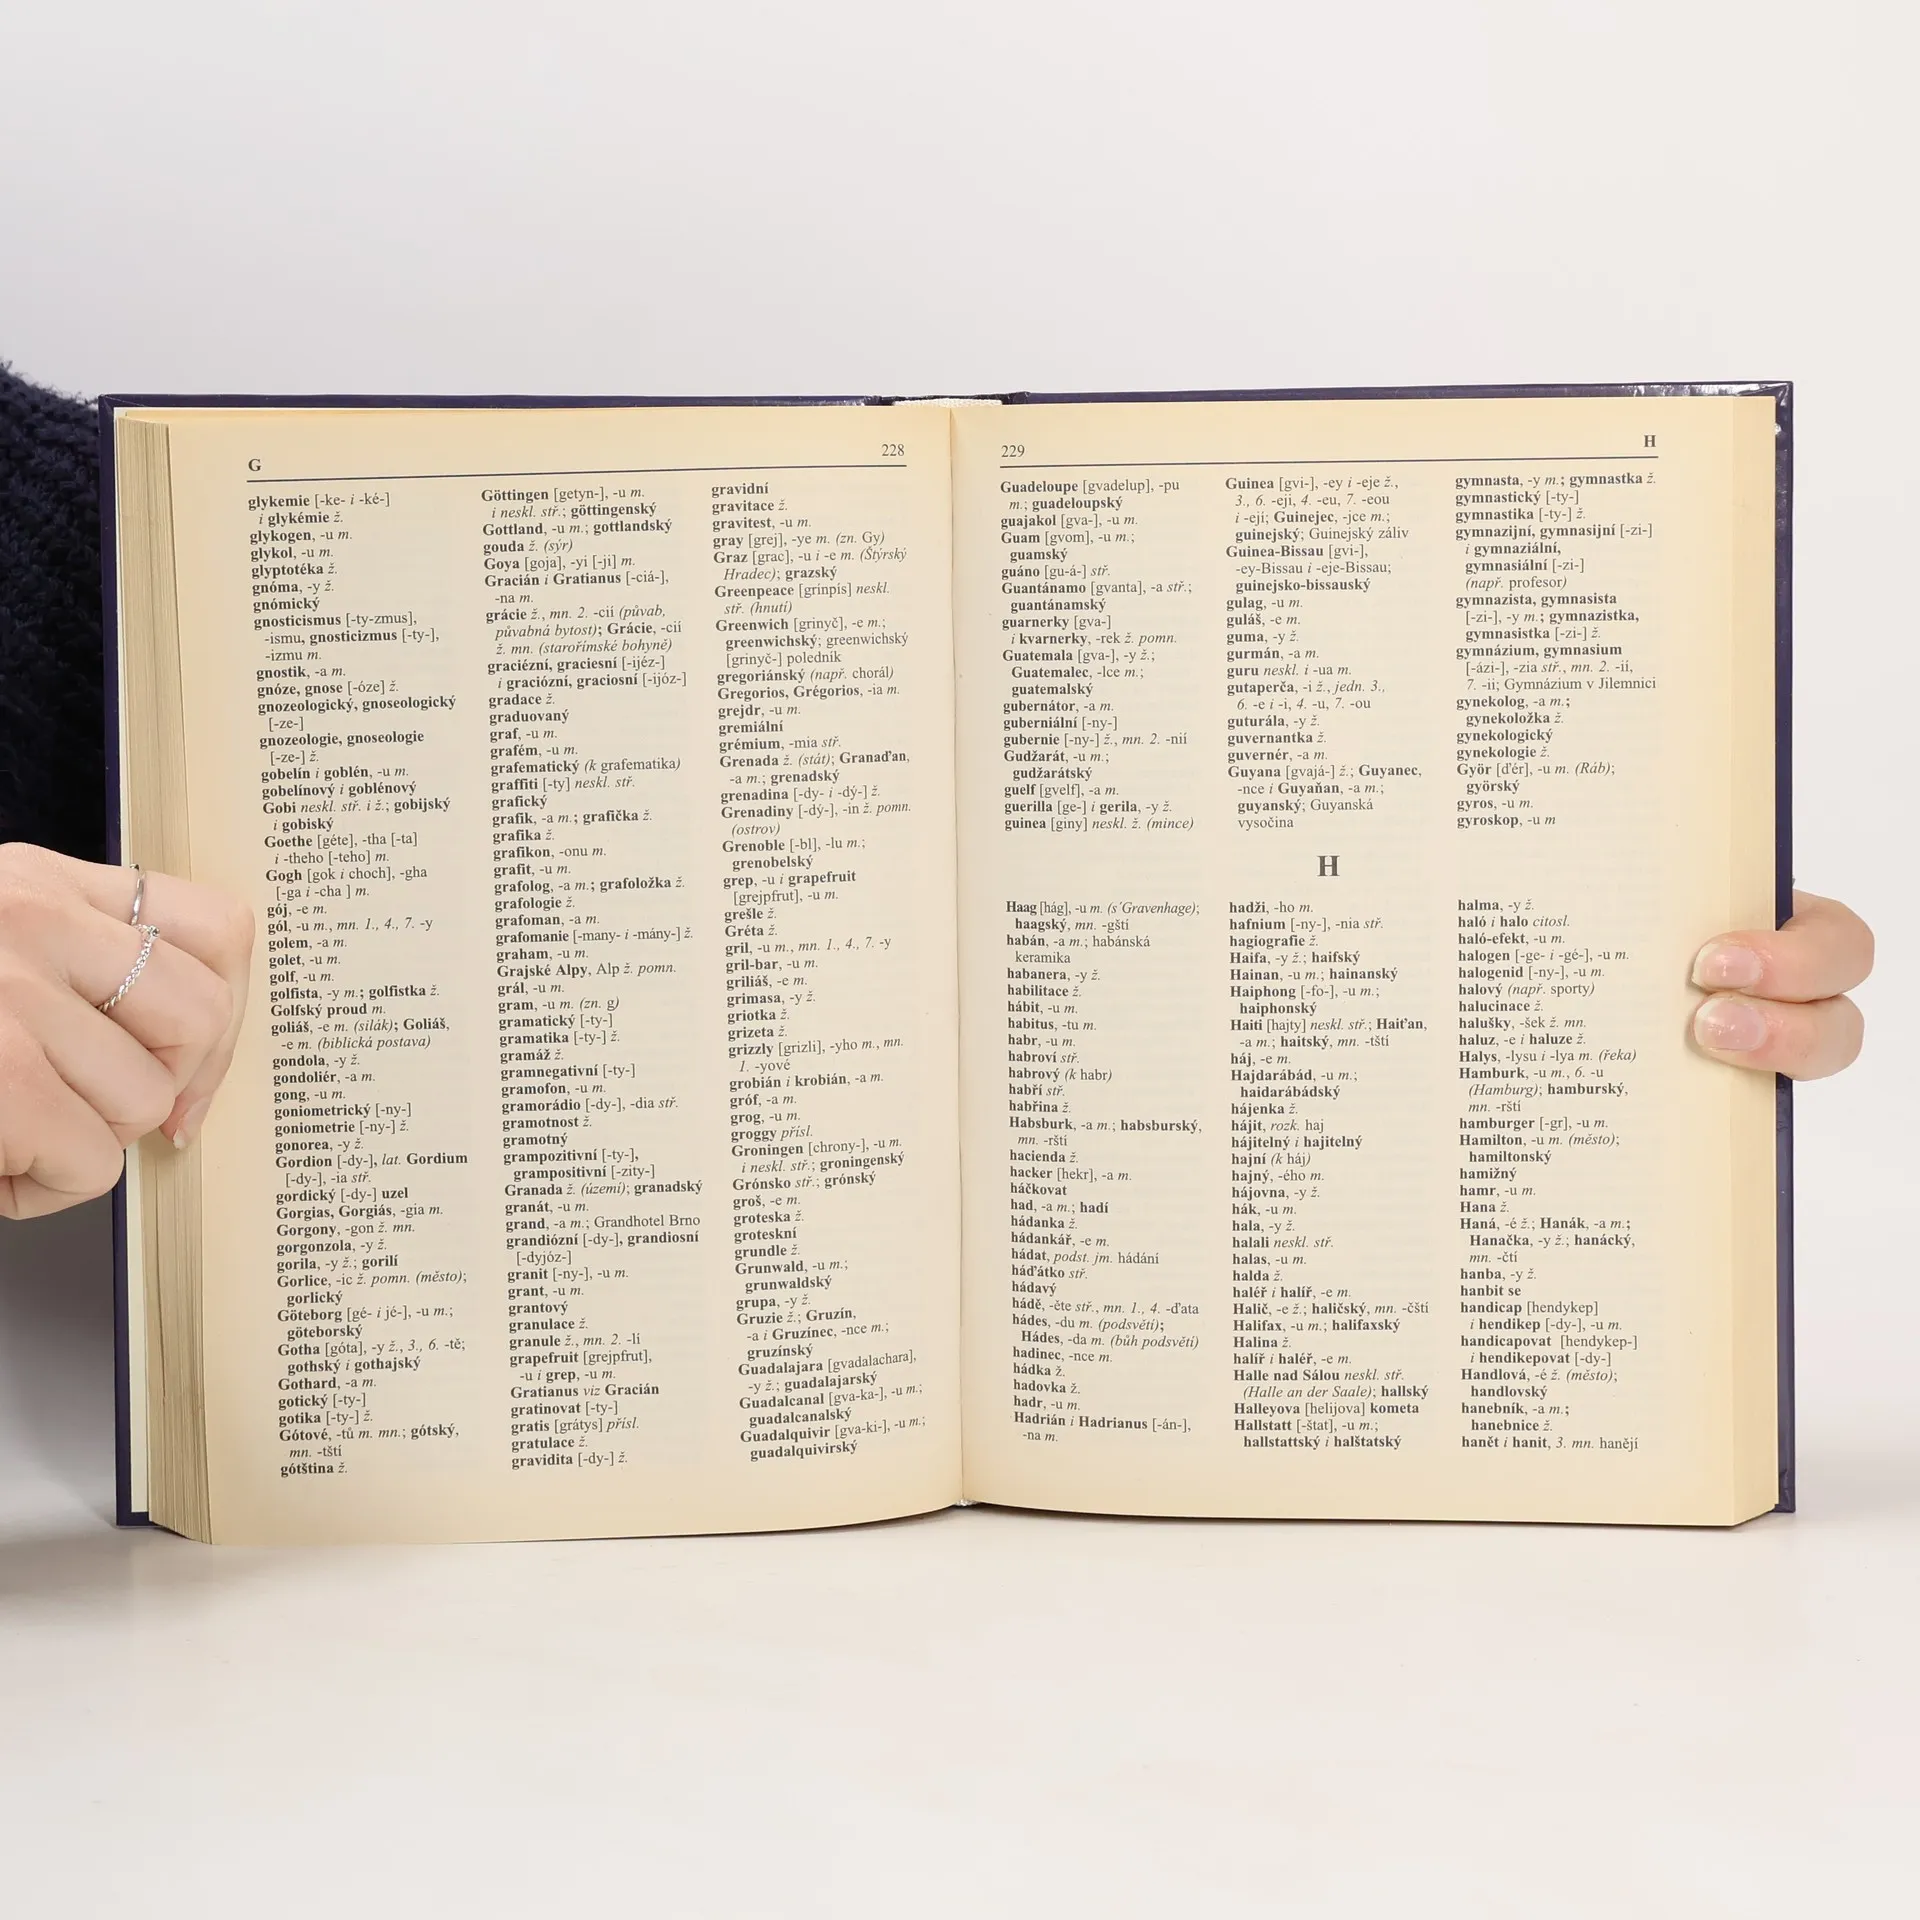 G
228
glykemie [-ke- i -ké-]
i glykémie ž.
glykogen, -u m.
glykol, -u m.
glyptotéka ž.
gnóma, -y ž.
gnómický
gnosticismus [-ty-zmus],
-ismu, gnosticizmus [-ty-],
-izmu m.
gnostik, -a m.
gnóze, gnose [-óze] ž.
gnozeologický, gnoseologický
[-ze-]
gnozeologie, gnoseologie
[-ze-] ž.
gobelín i goblén, -u m.
gobelínový i goblénový
Gobi neskl. stř. i ž.; gobijský
i gobiský
Goethe [géte], -tha [-ta]
i -theho [-teho] m.
Gogh [gok i choch], -gha
[-ga i -cha ] m.
gój, -e m.
gól, -u m., mn. 1., 4., 7. -y
golem, -a m.
golet, -u m.
golf, -u m.
golfista, -y m.; golfistka ž.
Golfský proud m.
goliáš, -e m. (silák); Goliáš,
-e m. (biblická postava)
gondola, -y ž.
gondoliér, -a m.
gong, -u m.
goniometrický [-ny-]
goniometrie [-ny-] ž.
gonorea, -y ž.
Gordion [-dy-], lat. Gordium
[-dy-], -ia stř.
gordický [-dy-] uzel
Gorgias, Gorgiás, -gia m.
Gorgony, -gon ž. mn.
gorgonzola, -y ž.
gorila, -y ž.; gorilí
Gorlice, -ic ž. pomn. (město);
gorlický
Göteborg [gé- i jé-], -u m.;
göteborský
Gotha [góta], -y ž., 3., 6. -tě;
gothský i gothajský
Gothard, -a m.
gotický [-ty-]
gotika [-ty-] ž.
Gótové, -tů m. mn.; gótský,
mn. -tští
gótština ž.
Göttingen [getyn-], -u m.
i neskl. stř.; göttingenský
Gottland, -u m.; gottlandský
gouda ž. (sýr)
Goya [goja], -yi [-ji] m.
Gracián i Gratianus [-ciá-],
-na m.
grácie ž., mn. 2. -cií (půvab,
půvabná bytost); Grácie, -cií
ž. mn. (starořímské bohyně)
graciézní, graciesní [-ijéz-]
i graciózní, graciosní [-ijóz-]
gradace ž.
graduovaný
graf, -u m.
grafém, -u m.
grafematický (k grafematika)
graffiti [-ty] neskl. stř.
grafický
grafik, -a m.; grafička ž.
grafika ž.
grafikon, -onu m.
grafit, -u m.
grafolog, -a m.; grafoložka ž.
grafologie ž.
grafoman, -a m.
grafomanie [-many- i -mány-] ž.
graham, -u m.
Grajské Alpy, Alp ž. pomn.
grál, -u m.
gram, -u m. (zn. g)
gramatický [-ty-]
gramatika [-ty-] ž.
gramáž ž.
gramnegativní [-ty-]
gramofon, -u m.
gramorádio [-dy-], -dia stř.
gramotnost ž.
gramotný
grampozitivní [-ty-],
grampositivní [-zity-]
Granada ž. (území); granadský
granát, -u m.
grand, -a m.; Grandhotel Brno
grandiózní [-dy-], grandiosní
[-dyjóz-]
granit [-ny-], -u m.
grant, -u m.
grantový
granulace ž.
granule ž., mn. 2. -lí
grapefruit [grejpfrut],
-u i grep, -u m.
Gratianus viz Gracián
gratinovat [-ty-]
gratis [grátys] přísl.
gratulace ž.
gravidita [-dy-] ž.
gravidní
gravitace ž.
gravitest, -u m.
gray [grej], -ye m. (zn. Gy)
Graz [grac], -u i -e m. (Štýrský
Hradec); grazský
Greenpeace [grínpís] neskl.
stř. (hnutí)
Greenwich [grinyč], -e m.;
greenwichský; greenwichský
[grinyč-] poledník
gregoriánský (např. chorál)
Gregorios, Grégorios, -ia m.
grejdr, -u m.
gremiální
grémium, -mia stř.
Grenada ž. (stát); Granaďan,
-a m.; grenadský
grenadina [-dy- i -dý-] ž.
Grenadiny [-dý-], -in ž. pomn.
(ostrov)
Grenoble [-bl], -lu m.;
grenobelský
grep, -u i grapefruit
[grejpfrut], -u m.
grešle ž.
Gréta ž.
gril, -u m., mn. 1., 4., 7. -y
gril-bar, -u m.
griliáš, -e m.
grimasa, -y ž.
griotka ž.
grizeta ž.
grizzly [grizli], -yho m., mn.
1. -yové
grobián i krobián, -a m.
gróf, -a m.
grog, -u m.
groggy přísl.
Groningen [chrony-], -u m.
i neskl. stř.; groningenský
Grónsko stř.; grónský
groš, -e m.
groteska ž.
groteskní
grundle ž.
Grunwald, -u m.;
grunwaldský
grupa, -y ž.
Gruzie ž.; Gruzín,
-a i Gruzínec, -nce m.;
gruzínský
Guadalajara [gvadalachara],
-y ž.; guadalajarský
Guadalcanal [gva-ka-], -u m.;
guadalcanalský
Guadalquivir [gva-ki-], -u m.;
guadalquivirský
229
H
Guadeloupe [gvadelup], -pu
m.; guadeloupský
guajakol [gva-], -u m.
Guam [gvom], -u m.;
guamský
guáno [gu-á-] stř.
Guantánamo [gvanta], -a stř.;
guantánamský
guarnerky [gva-]
i kvarnerky, -rek ž. pomn.
Guatemala [gva-], -y ž.;
Guatemalec, -lce m.;
guatemalský
gubernátor, -a m.
guberniální [-ny-]
gubernie [-ny-] ž., mn. 2. -nií
Gudžarát, -u m.;
gudžarátský
guelf [gvelf], -a m.
guerilla [ge-] i gerila, -y ž.
guinea [giny] neskl. ž. (mince)
Guinea [gvi-], -ey i -eje ž.,
3., 6. -eji, 4. -eu, 7. -eou
i -ejí; Guinejec, -jce m.;
guinejský; Guinejský záliv
Guinea-Bissau [gvi-],
-ey-Bissau i -eje-Bissau;
guinejsko-bissauský
gulag, -u m.
guláš, -e m.
guma, -y ž.
gurmán, -a m.
guru neskl. i -ua m.
gutaperča, -i ž., jedn. 3.,
6. -e i -i, 4. -u, 7. -ou
guturála, -y ž.
guvernantka ž.
guvernér, -a m.
Guyana [gvajá-] ž.; Guyanec,
-nce i Guyaňan, -a m.;
guyanský; Guyanská
vysočina
gymnasta, -y m.; gymnastka ž.
gymnastický [-ty-]
gymnastika [-ty-] ž.
gymnazijní, gymnasijní [-zi-]
i gymnaziální,
gymnasiální [-zi-]
(např. profesor)
gymnazista, gymnasista
[-zi-], -y m.; gymnazistka,
gymnasistka [-zi-] ž.
gymnázium, gymnasium
[-ázi-], -zia stř., mn. 2. -ií,
7. -ii; Gymnázium v Jilemnici
gynekolog, -a m.;
gynekoložka ž.
gynekologický
gynekologie ž.
Györ [ďér], -u m. (Ráb);
györský
gyros, -u m.
gyroskop, -u m
H
Haag [hág], -u m. (s´Gravenhage);
haagský, mn. -gští
habán, -a m.; habánská
keramika
habanera, -y ž.
habilitace ž.
hábit, -u m.
habitus, -tu m.
habr, -u m.
habroví stř.
habrový (k habr)
habří stř.
habřina ž.
Habsburk, -a m.; habsburský,
mn. -rští
hacienda ž.
hacker [hekr], -a m.
háčkovat
had, -a m.; hadí
hádanka ž.
hádankář, -e m.
hádat, podst. jm. hádání
háďátko stř.
hádavý
hádě, -ěte stř., mn. 1., 4. -ďata
hádes, -du m. (podsvětí);
Hádes, -da m. (bůh podsvětí)
hadinec, -nce m.
hádka ž.
hadovka ž.
hadr, -u m.
Hadrián i Hadrianus [-án-],
-na m.
hadži, -ho m.
hafnium [-ny-], -nia stř.
hagiografie ž.
Haifa, -y ž.; haifský
Hainan, -u m.; hainanský
Haiphong [-fo-], -u m.;
haiphonský
Haiti [hajty] neskl. stř.; Haiťan,
-a m.; haitský, mn. -tští
háj, -e m.
Hajdarábád, -u m.;
haidarábádský
hájenka ž.
hájit, rozk. haj
hájitelný i hajitelný
hajní (k háj)
hajný, -ého m.
hájovna, -y ž.
hák, -u m.
hala, -y ž.
halali neskl. stř.
halas, -u m.
halda ž.
haléř i halíř, -e m.
Halič, -e ž.; haličský, mn. -čští
Halifax, -u m.; halifaxský
Halina ž.
halíř i haléř, -e m.
Halle nad Sálou neskl. stř.
(Halle an der Saale); hallský
Halleyova [helijova] kometa
Hallstatt [-štat], -u m.;
hallstattský i halštatský
halma, -y ž.
haló i halo citosl.
haló-efekt, -u m.
halogen [-ge- i -gé-], -u m.
halogenid [-ny-], -u m.
halový (např. sporty)
halucinace ž.
halušky, -šek ž. mn.
haluz, -e i haluze ž.
Halys, -lysu i -lya m. (řeka)
Hamburk, -u m., 6. -u
(Hamburg); hamburský,
mn. -rští
hamburger [-gr], -u m.
Hamilton, -u m. (město);
hamiltonský
hamižný
hamr, -u m.
Hana ž.
Haná, -é ž.; Hanák, -a m.;
Hanačka, -y ž.; hanácký,
mn. -čtí
hanba, -y ž.
hanbit se
handicap [hendykep]
i hendikep [-dy-], -u m.
handicapovat [hendykep-]
i hendikepovat [-dy-]
Handlová, -é ž. (město);
handlovský
hanebník, -a m.;
hanebnice ž.
hanět i hanit, 3. mn. hanějí